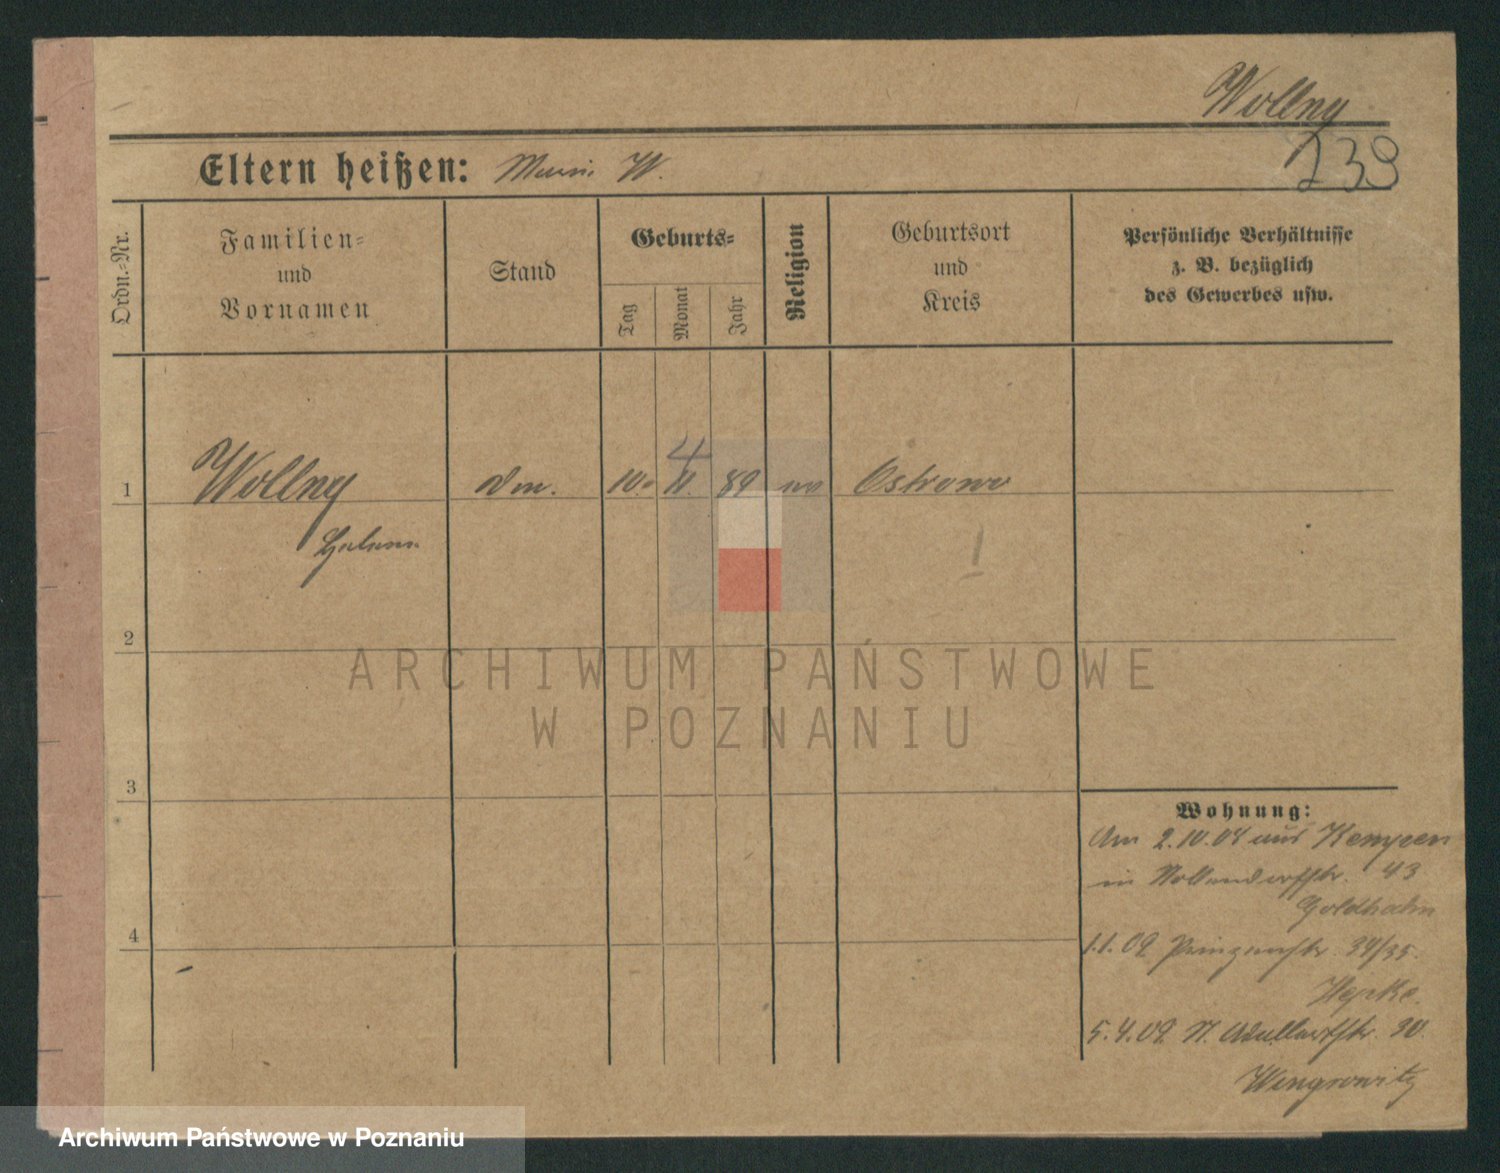 Wollny
239
Eltern heißen: W.
Ordn.-Nr.
Familien-
und
Vornamen
Stand
Geburts-
Tag
Monat
Jahr
Religion
Geburtsort
und
Kreis
Persönliche Verhältnisse
z. B. bezüglich
des Gewerbes usw.
4
1 Wollny 10. 89 Ostrowo
2
3
4
Wohnung:
Am 2.10.08 aus Kempen
in Nollendorffstr. 43
Goldhahn
1.1.09 Prinzenstr. 34/35.
Hepke.
5.4.09. 30.
Wengrowitz
ARCHIWUM PAŃSTWOWE
W POZNANIU
Archiwum Państwowe w Poznaniu